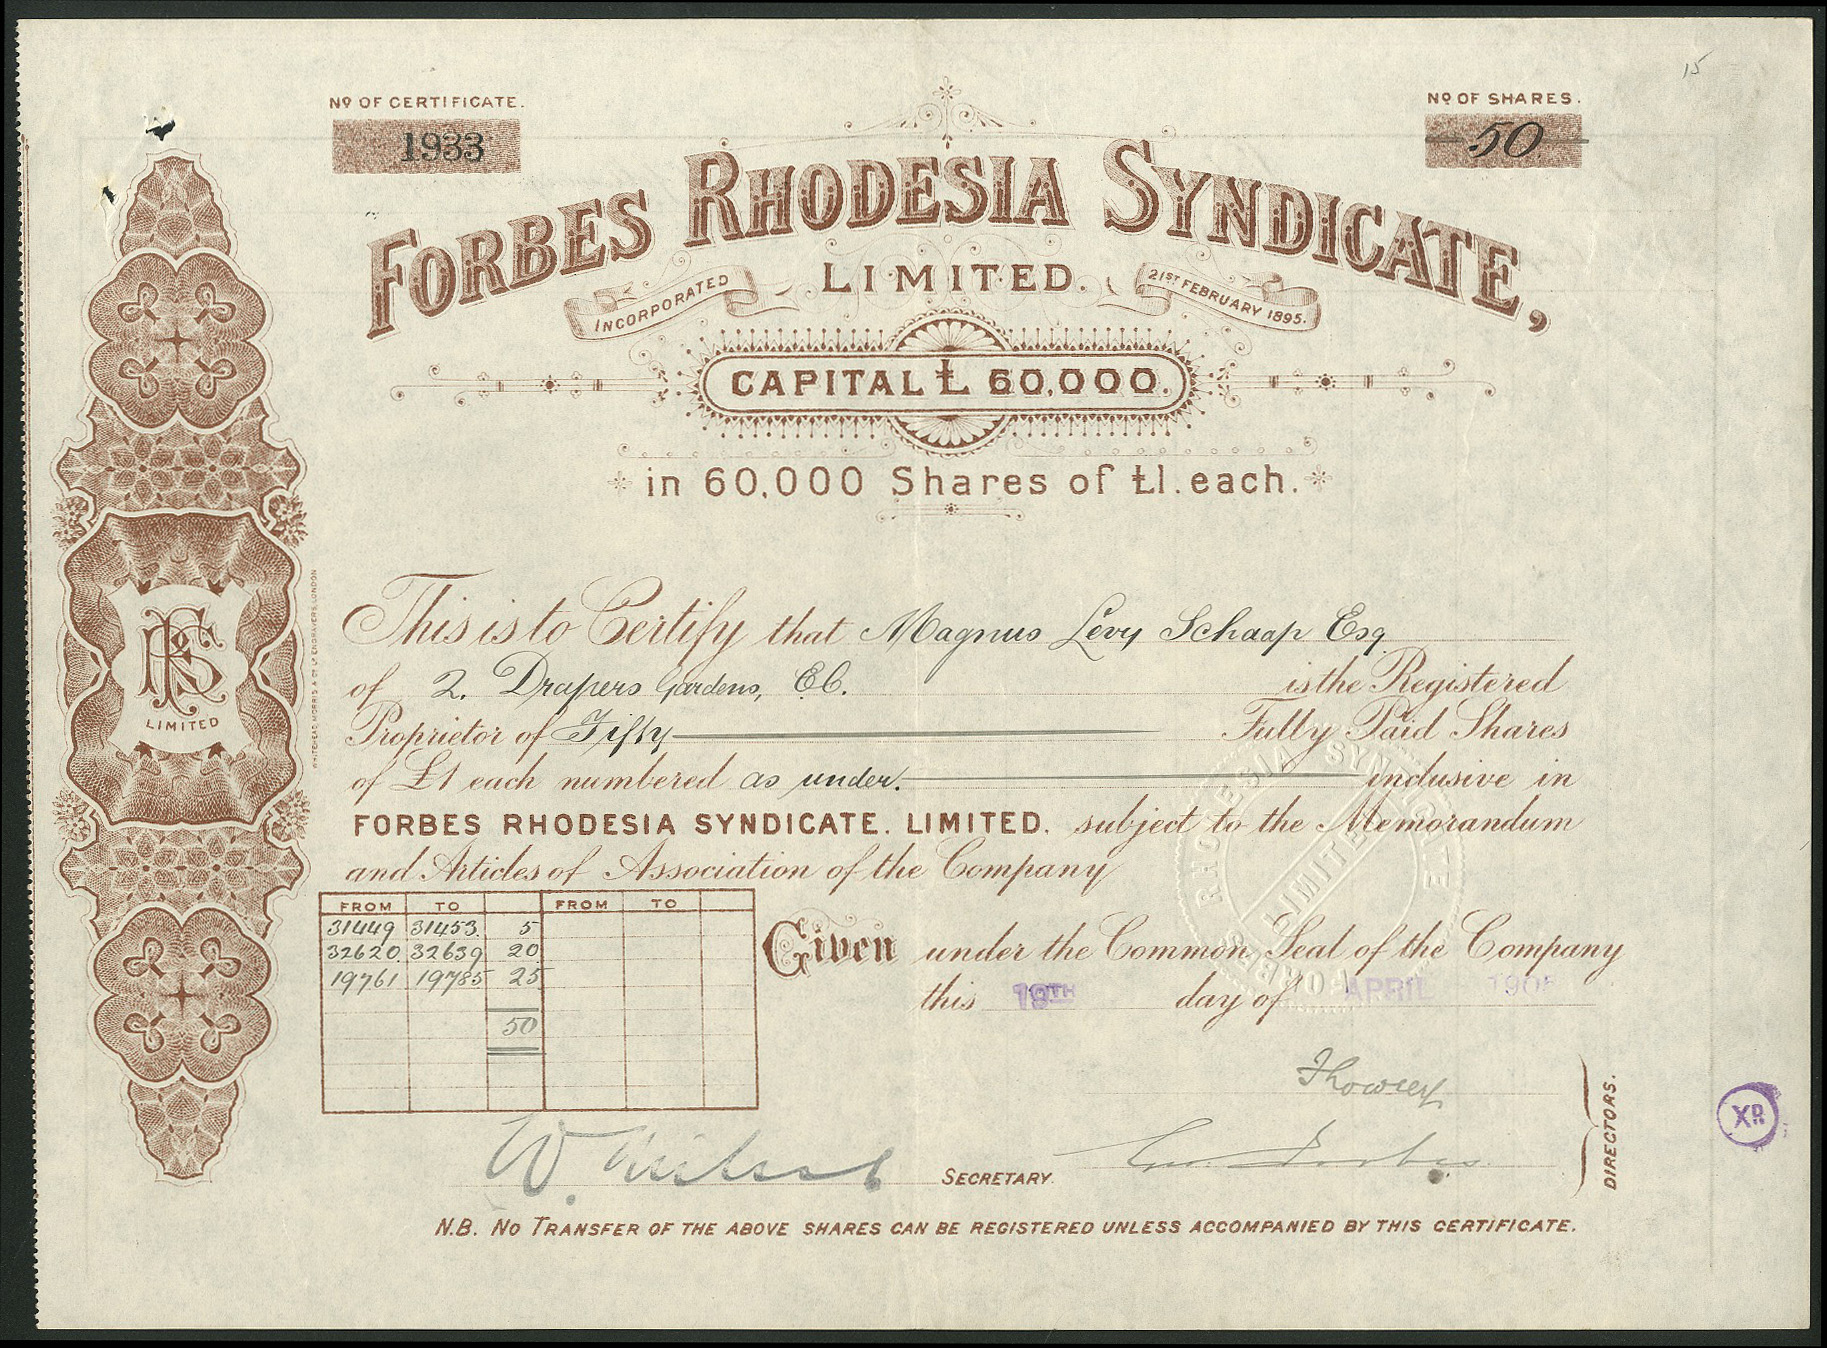 15
No OF CERTIFICATE.
1933
No OF SHARES.
50
FORBES RHODESIA SYNDICATE,
LIMITED.
INCORPORATED
21ST FEBRUARY 1895.
CAPITAL £ 60,000.
in 60,000 Shares of £1. each.
This is to Certify that Magnus Levy Schaap Esq
of 2. Drapers Gardens, E.C. is the Registered
Proprietor of Fifty Fully Paid Shares
of £1 each numbered as under. inclusive in
FORBES RHODESIA SYNDICATE. LIMITED. subject to the Memorandum
and Articles of Association of the Company
FROM TO FROM TO
31449 31453. 5
32620 32639 20
19761 19785 25
50
Given under the Common Seal of the Company
this 19TH day of APRIL
RHODESIA SYNDICATE
LIMITED
FORBES
FRS
LIMITED
WHITEHEAD MORRIS & Co Ld ENGRAVERS, LONDON
W.
SECRETARY.
Forbes
DIRECTORS.
XR
N.B. NO TRANSFER OF THE ABOVE SHARES CAN BE REGISTERED UNLESS ACCOMPANIED BY THIS CERTIFICATE.